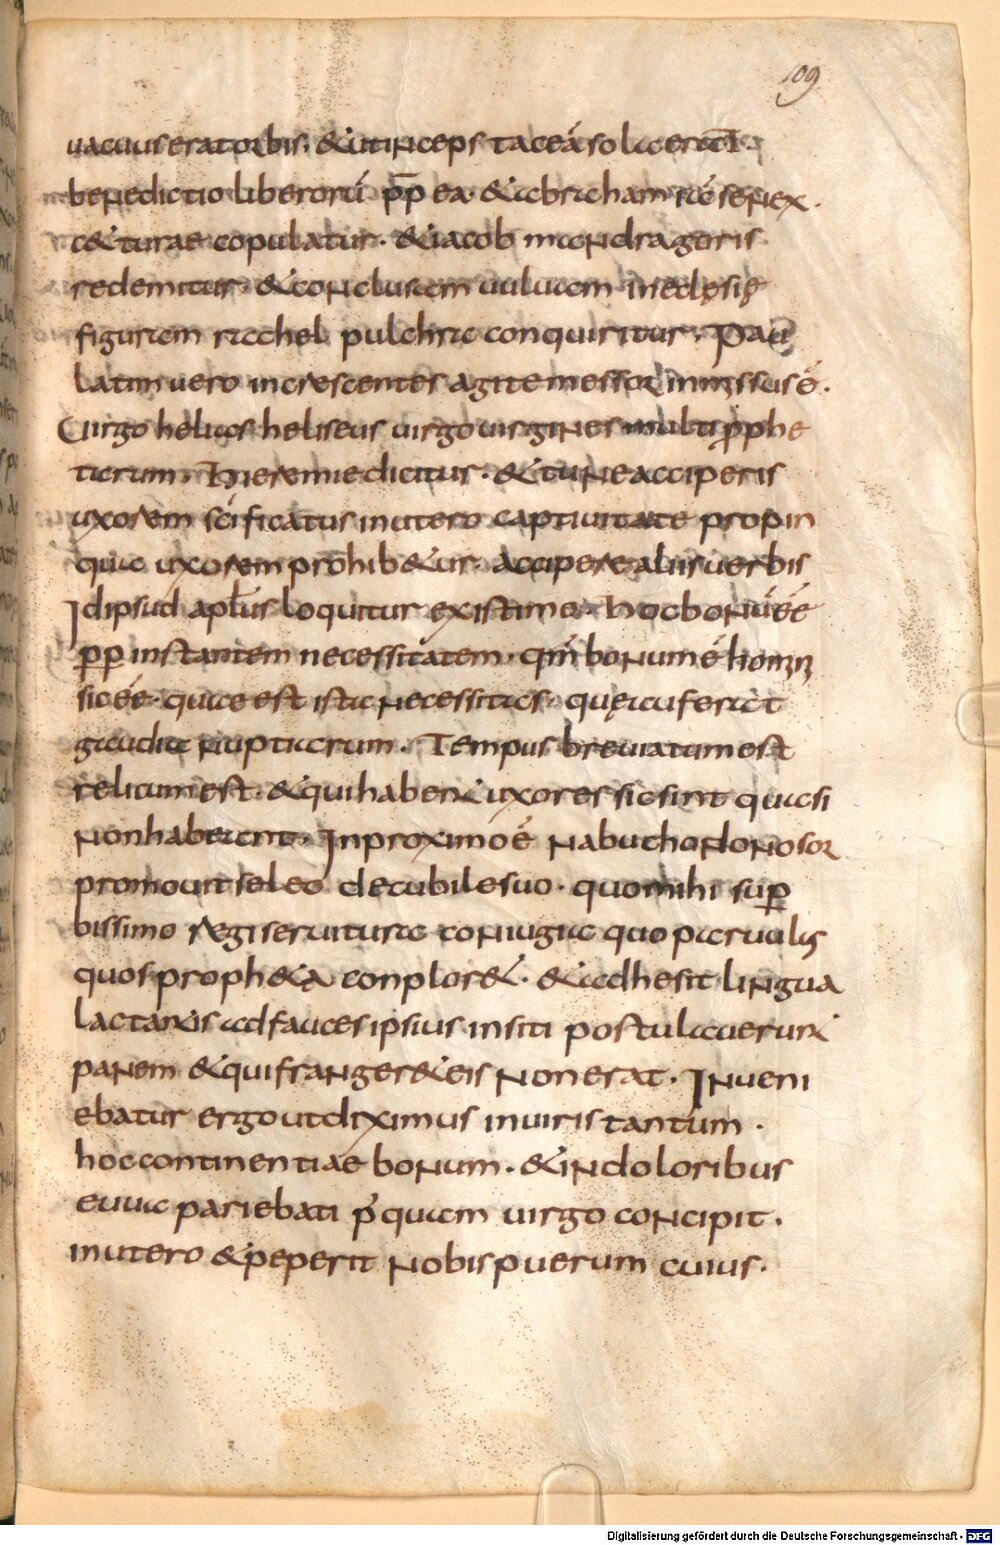 109
uacuus erat orbis. & ut inceps taceā sola erat
benedictio liberorū pp̄ ea & abraham iā senex.
c&turae copulatur. & iacob mandragoris
redemitur & conclusam uuluam in eclęsię
figuram rachel pulchra conquiritur. Pau
latim uero increscentes agitemessor inmissus ē.
Uirgo helias heliseus uirgo uirgines multi prophe
tarum. Hieremie dicitur. & tu ne acciperis
uxorem scīficatus in utero captiuitate propin
qua uxorem prohib&ur. accipere aliis uerbis
Idipsud aplus loquitur existimo. hoc bonū éé
pp instantem necessitatem. qm̄ bonum ē homini
sic éé. quae est ista necessitas. quę auferat
gaudia nuptiarum. Tempus breuiatum est
relicum est. & qui habent uxores sic sint quasi
non habeant. In proximo ē nabuchodonosor
promouit se leo de cubile suo. quo mihi sup
bissimo regi seruitura coniugia quo paruulis
quos proph&a conplor&. & adhesit lingua
lactantis ad fauces ipsius in siti postulauerunt
panem & qui franger& eis non erat. Inueni
ebatur ergo ut diximus in uiris tantum.
hoc continentiae bonum. & in doloribus
euua pariebat i p̄quam uirgo concipit.
in utero & peperit nobis puerum cuius.
Digitalisierung gefördert durch die Deutsche Forschungsgemeinschaft - DFG